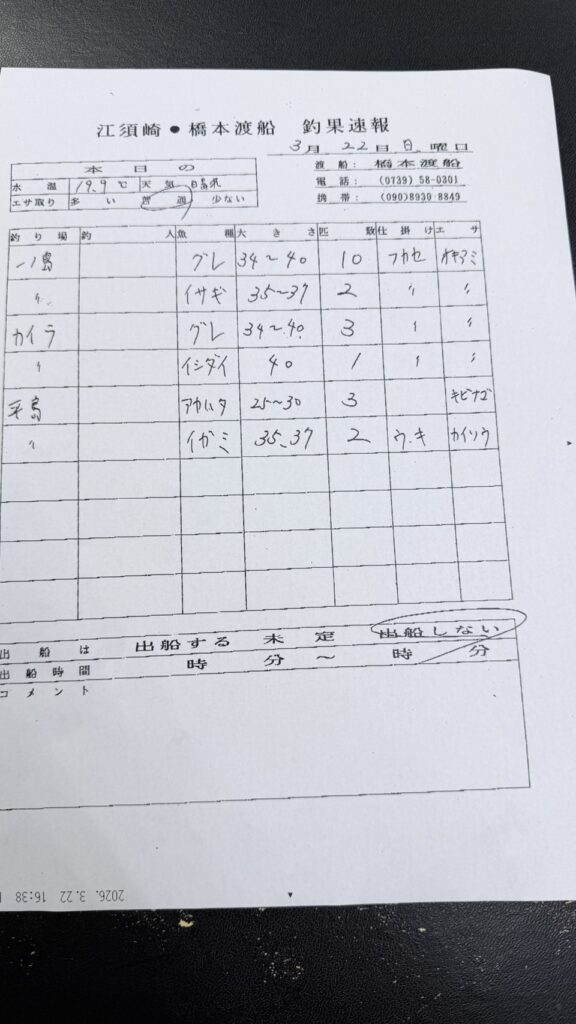 江須崎●橋本渡船 釣果速報
3月 22日 日 曜日
渡船: 橋本渡船
電話: (0739) 58-0301
携帯: (090)8930-8849
本日の
水温 19.9℃ 天気
エサ取り 多い 普通 少ない
釣り場 釣人 魚種 大きさ 匹数 仕掛け エサ
一ノ島 グレ 34～40 10 フカセ オキアミ
〃 イサギ 35～37 2 〃 〃
カイラ グレ 34～40 3 〃 〃
〃 イシダイ 40 1 〃 〃
平島 アカハタ 25～30 3 キビナゴ
〃 イガミ 35、37 2 ウキ カイソウ
出船は 出船する 未定 出船しない
出船時間 時 分～ 時 分
コメント
2026. 3.22 16:38